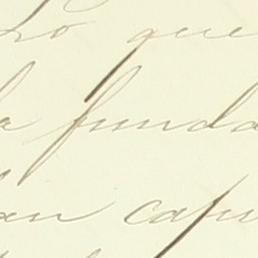 lo que
a funda
an capi